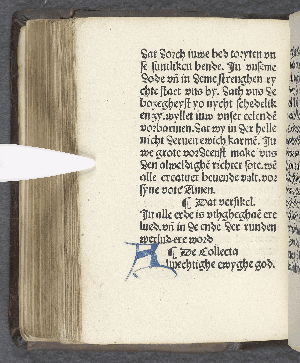 dat dorch iuwe bed toryten vn
se suntliken bende. In vnseme
dode vñ in deme strenghen ry
chte staet vns by. Dath vns de
bozegheyst yo nycht schedelik
en zy. wyllet iuw vnser ellendē
vorbarmen. dat wy in der helle
nicht deruen ewich karmē. In
we grote vordenst make vns
den alweldighe richter sote. wē
alle creatuer beuende valt. vor
syne vote Amen.
¶ Dat versikel.
In alle erde is vthgheghaē ere
lued. vñ in de ende der runden
werlnd ere word
¶ De Collecta
Alwechtighe ewyghe god.